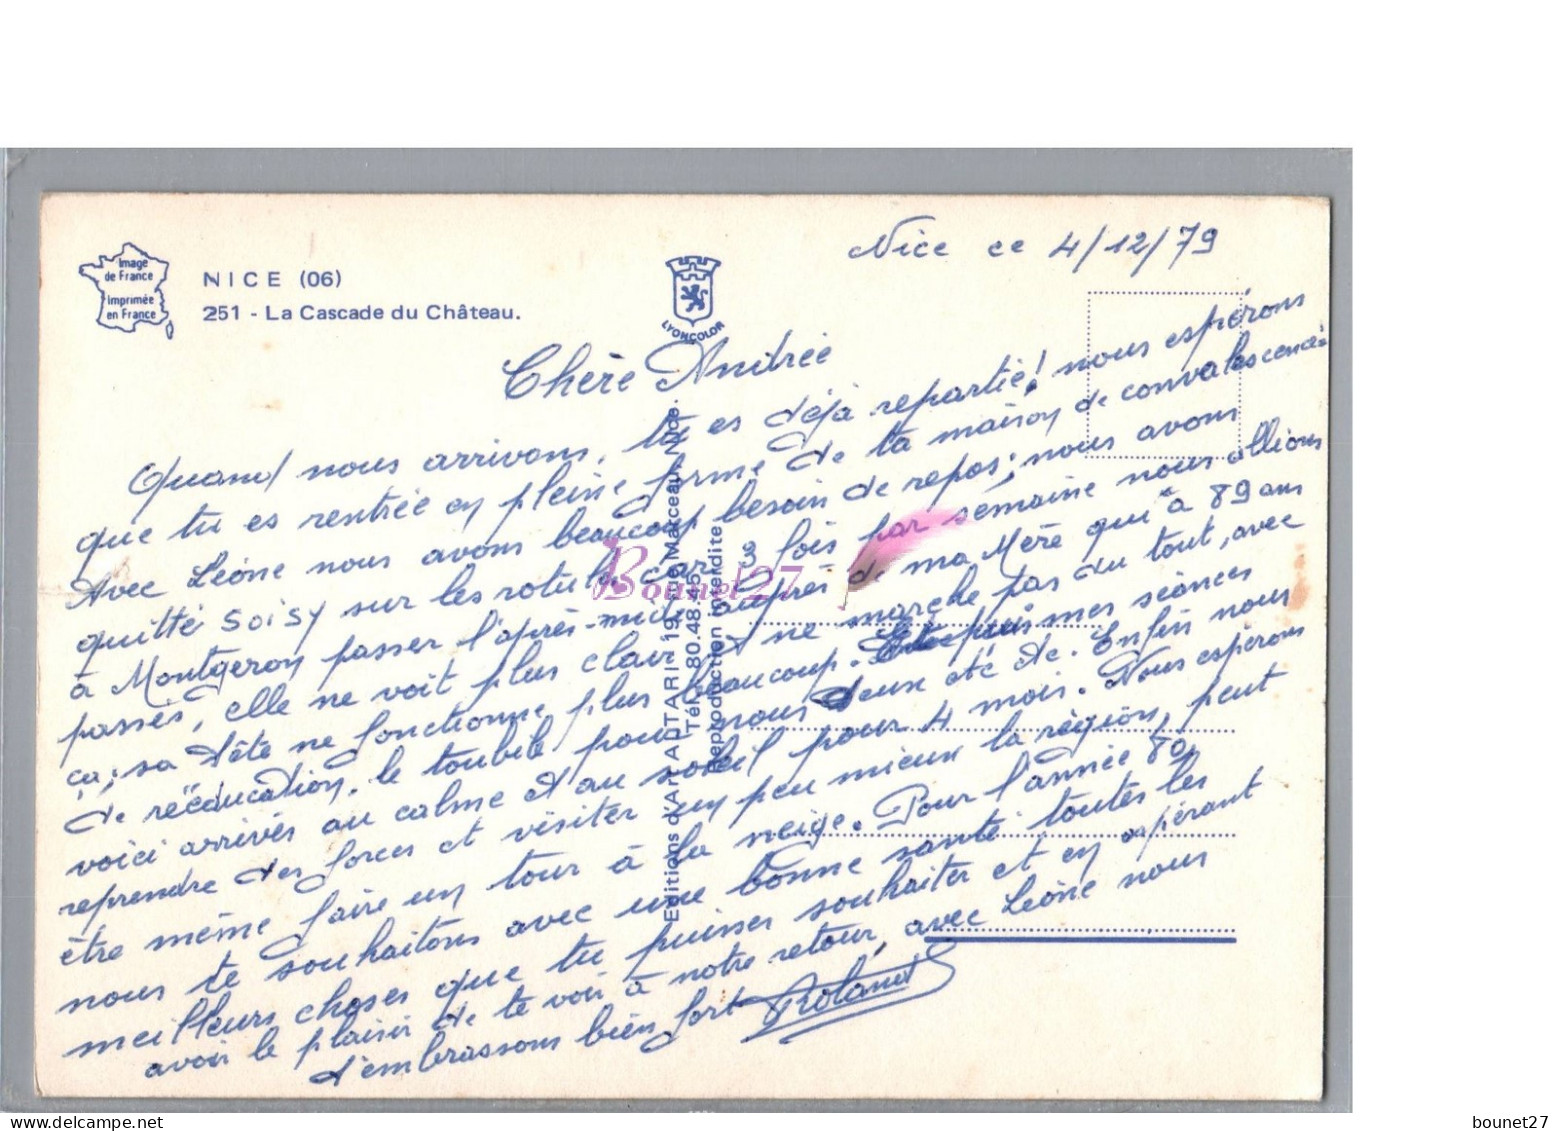 Image
de France
imprimée
en France
NICE (06)
251 - La Cascade du Château.
LYONCOLOR
Nice ce 4/12/79
Chère Andrée
Quand nous arrivons, tu es déjà repartie! nous espérons
que tu es rentrée en pleine forme de ta maison de convalescence
Avec Léone nous avons beaucoup besoin de repos; nous avons
quitté Soisy sur les rotules car 3 fois par semaine nous allions
à Montgeron passer l'après-midi auprès de ma Mère qui à 89 ans
passés, elle ne voit plus clair, ne marche pas du tout, avec
ça; sa tête ne fonctionne plus beaucoup. Et puis mes séances
de rééducation, le toubib pour nous deux etc etc. Enfin nous
voici arrivés au calme et au soleil pour 4 mois. Nous espérons
reprendre des forces et visiter un peu mieux la région, peut
être même faire un tour à la neige. Pour l'année 80,
nous te souhaitons avec une bonne santé toutes les
meilleurs choses que tu puisses souhaiter et en espérant
avoir le plaisir de te voir à notre retour, avec Léone nous
t'embrassons bien fort Roland
Editions d'Art ADTARIN 19, rue Marceau, Nice.
Tél. 80.48.45
Reproduction interdite
Bounet27
bounet27